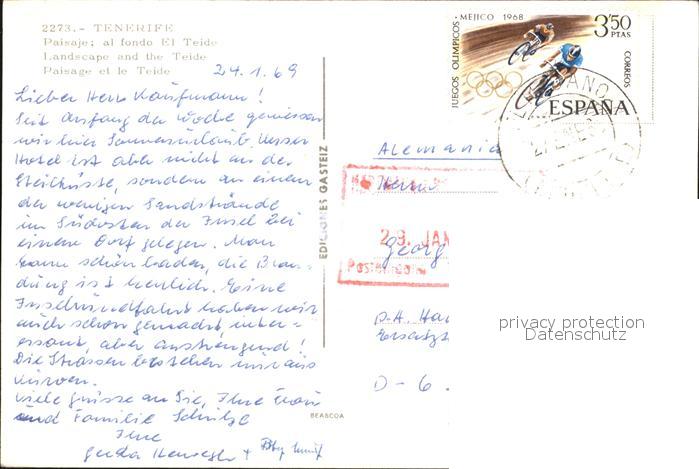 2273.- TENERIFE
Paisaje; al fondo El Teide
Landscape and the Teide
Paisage et le Teide
24.1.69
Lieber Herr Kaufmann!
Seit Anfang der Woche geniessen
wir hier Sonnenurlaub. Unser
Hotel ist aber nicht an der
Steilküste, sondern an einem
der wenigen Sandstrände
im Südosten der Insel bei
einem Dorf gelegen. Man
kann schön baden, die Bran-
dung ist herrlich. Eine
Inselrundfahrt haben wir
auch schon gemacht, inter-
essant, aber anstrengend!
Die Strassen bestehen nur aus
Kurven.
Viele Grüsse an Sie, Ihre Frau
und Familie Schulze
Ihre
Gerda
EDICIONES GASTEIZ
BEASCOA
JUEGOS OLIMPICOS - MEJICO 1968
3'50
PTAS
CORREOS
ESPAÑA
Alemania
Herrn
29. JAN
Georg
D-6
privacy protection
Datenschutz